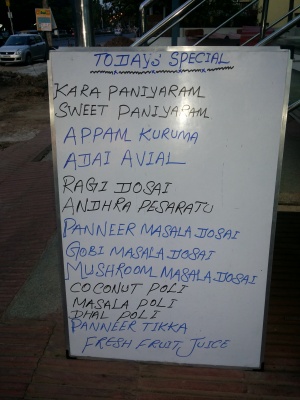 TODAYS' SPECIAL
KARA PANIYARAM
SWEET PANIYARAM
APPAM KURUMA
ADAI AVIAL
RAGI DOSAI
ANDHRA PESARATU
PANNEER MASALA DOSAI
GOBI MASALA DOSAI
MUSHROOM MASALA DOSAI
COCONUT POLI
MASALA POLI
DHAL POLI
PANNEER TIKKA
FRESH FRUIT JUICE